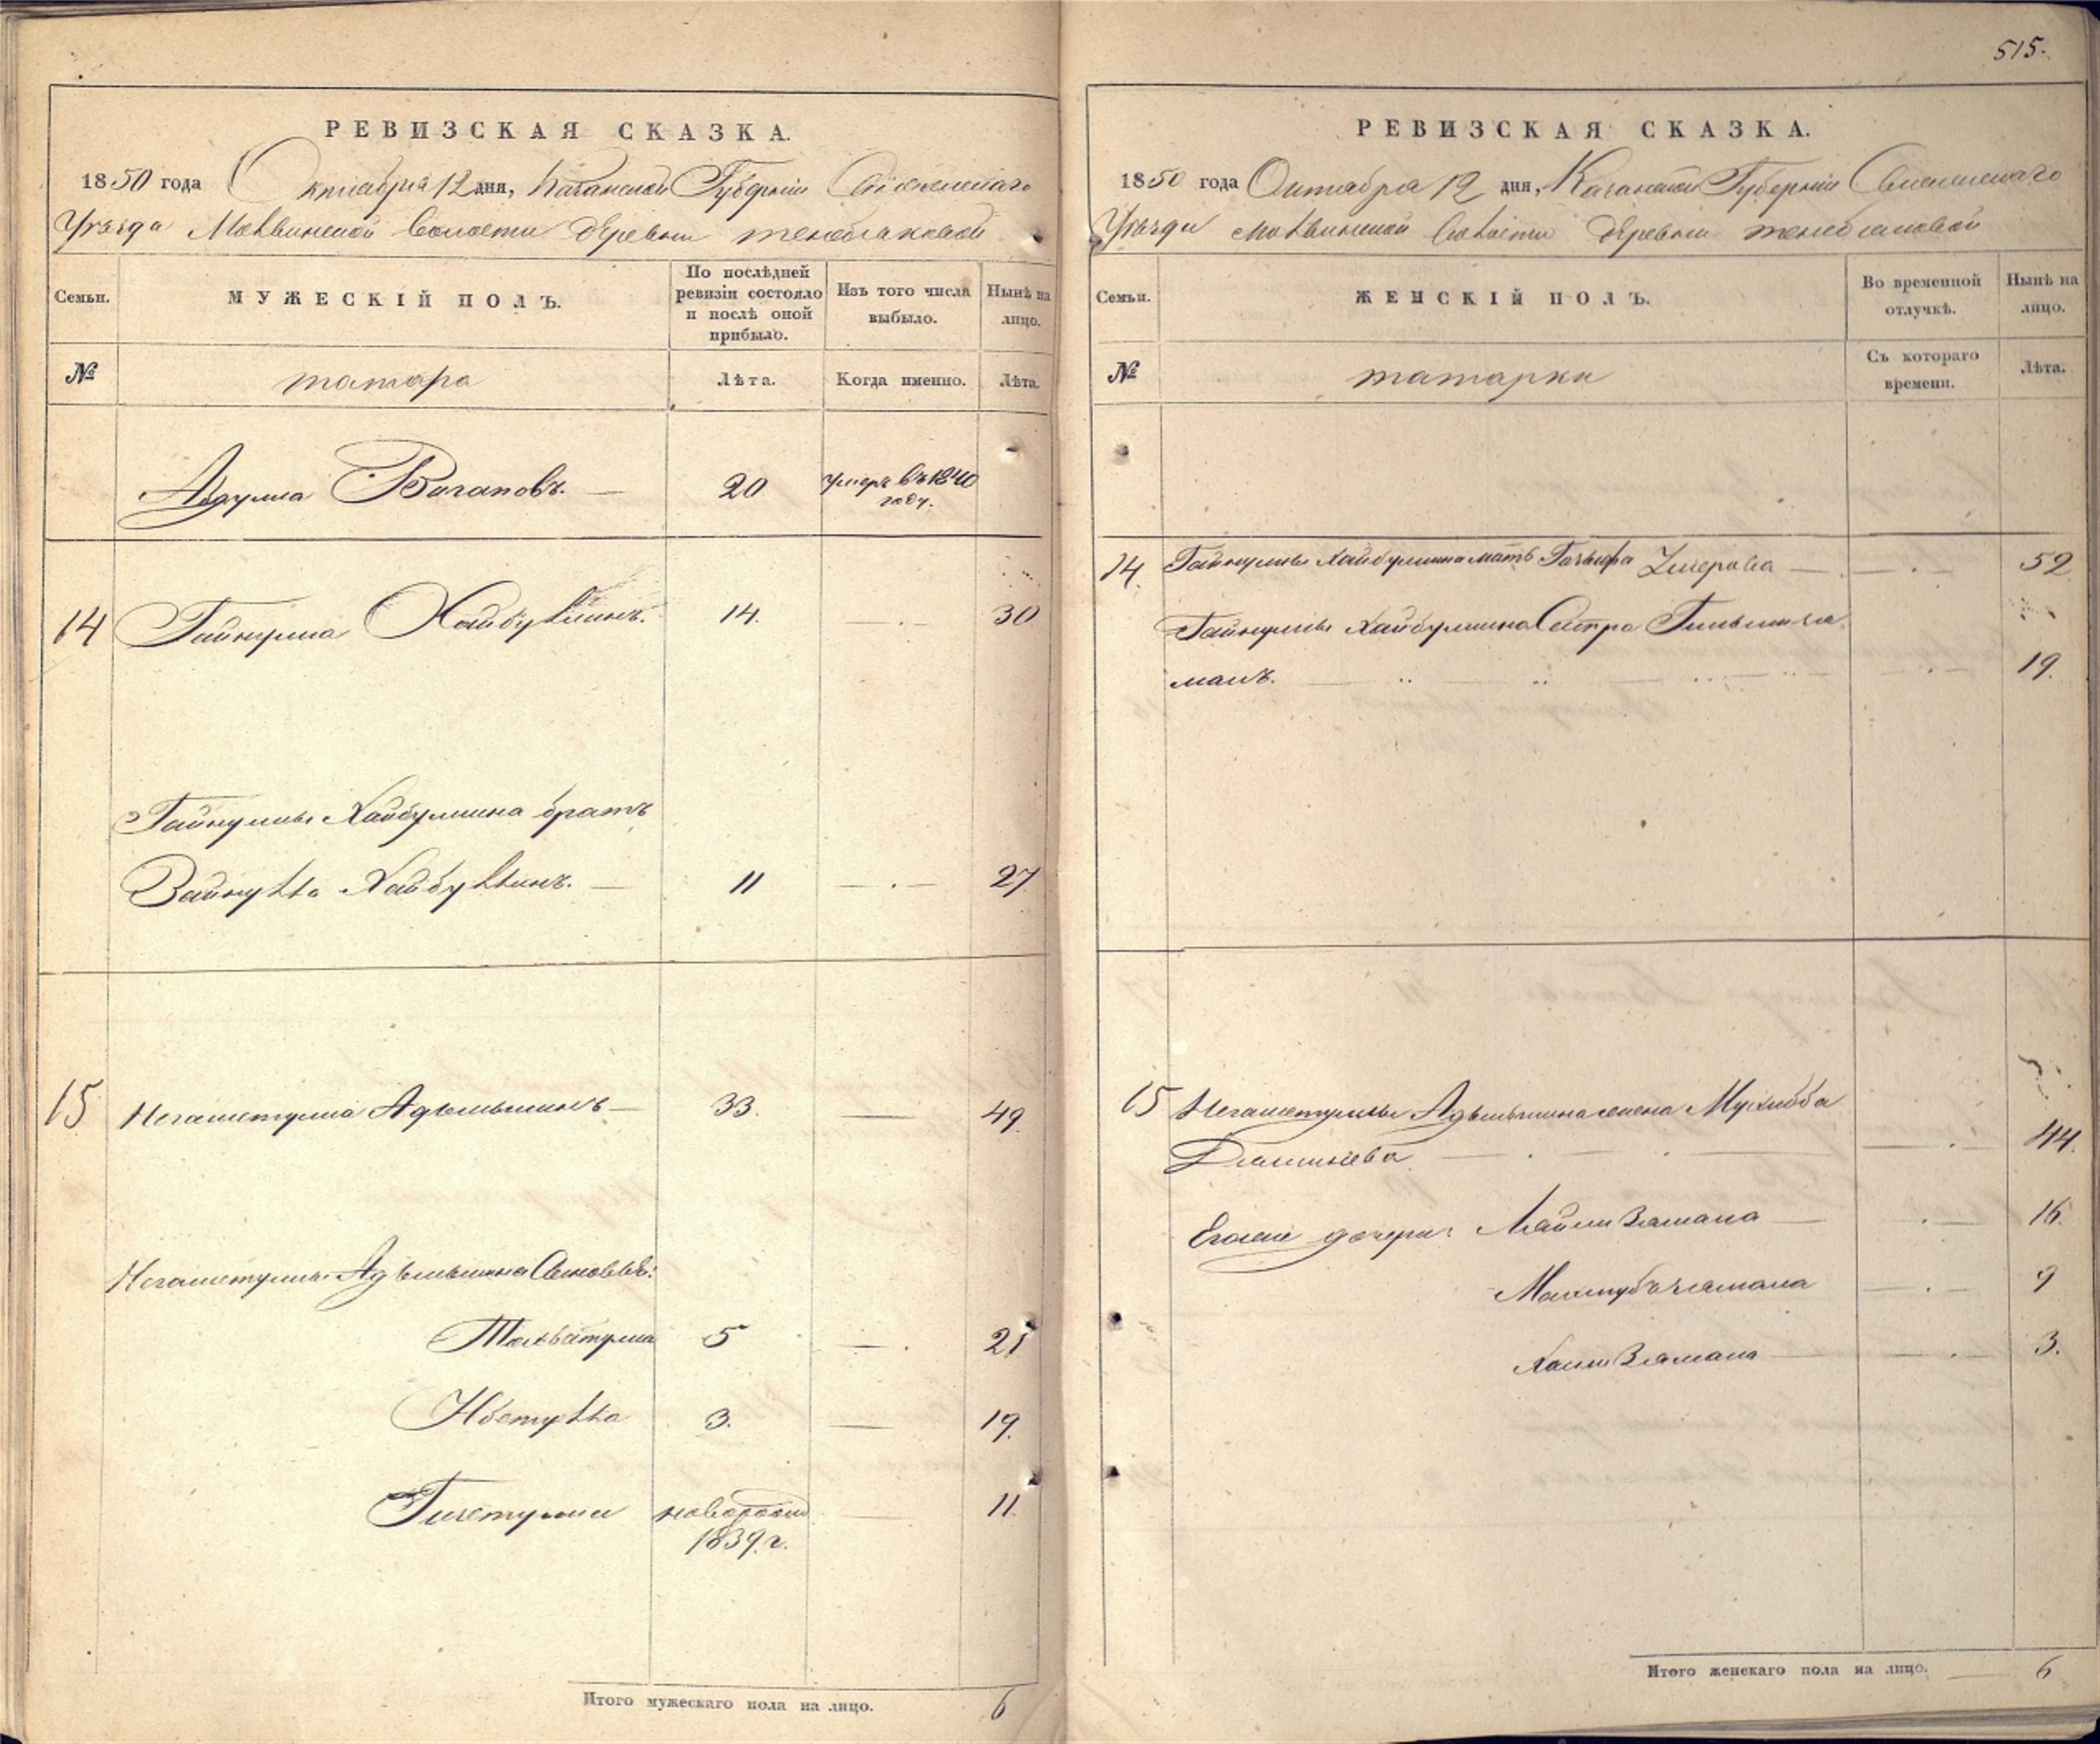 РЕВИЗСКАЯ СКАЗКА.
1850 года Октября 12 дня, Казанской Губерніи Свіяжскаго
Уѣзда Молвинской Волости деревни
Семьи. МУЖЕСКІЙ ПОЛЪ. По послѣдней ревизіи состояло и послѣ оной прибыло. Изъ того числа выбыло. Нынѣ на лицо.
№ татара Лѣта. Когда именно. Лѣта.
Абдулла Вагаповъ. 20 умеръ въ 1840 году.
14 Гайнулла Хайбуллинъ. 14. 30
Гайнуллы Хайбуллина братъ
Зайнулла Хайбуллинъ. 11 27
15 Негаметулла Адъльшинъ 33. 49
Негаметуллы Адъльшина Сыновья:
5 21
3. 19.
новорожд 11.
1839 г.
Итого мужескаго пола на лицо. 6
515.
РЕВИЗСКАЯ СКАЗКА.
1850 года Октября 12 дня, Казанской Губерніи Свіяжскаго
Уѣзда Молвинской Волости деревни
Семьи. ЖЕНСКІЙ ПОЛЪ. Во временной отлучкѣ. Нынѣ на лицо.
№ татарки Съ котораго времени. Лѣта.
14. Гайнуллы Хайбуллина мать 52
Гайнуллы Хайбуллина Сестра
малъ. 19.
15 Негаметуллы Адъльшина жена
44.
Егоже дочери: 16.
9
3.
Итого женскаго пола на лицо. 6